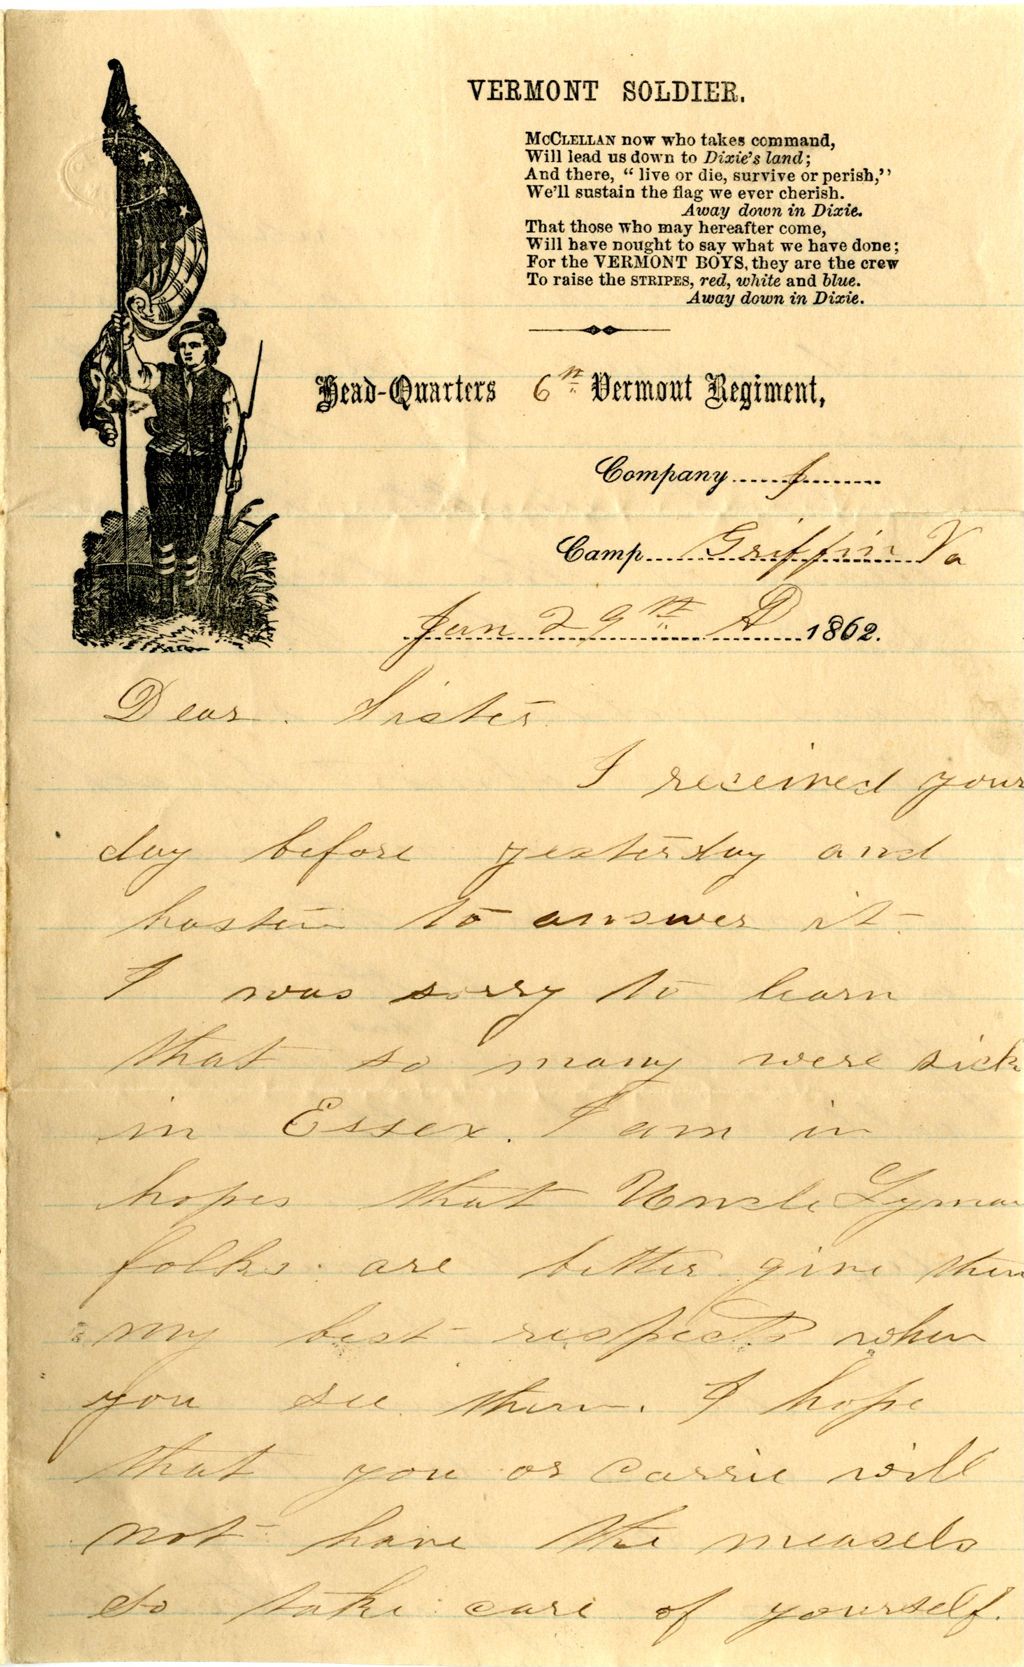 VERMONT SOLDIER.
McCLELLAN now who takes command,
Will lead us down to Dixie's land;
And there, "live or die, survive or perish,"
We'll sustain the flag we ever cherish.
Away down in Dixie.
That those who may hereafter come,
Will have nought to say what we have done;
For the VERMONT BOYS, they are the crew
To raise the STRIPES, red, white and blue.
Away down in Dixie.
Head-Quarters 6th Vermont Regiment,
Company I
Camp Griffin Va
Jan 29th AD 1862.
Dear Sister
I received your
day before yesterday and
hasten to answer it
I was sorry to learn
that so many were sick
in Essex. I am in
hopes that Uncle Lyman
folks are better give them
my best respects when
you see them. I hope
that you or Carrie will
not have the measels
do take care of yourself.